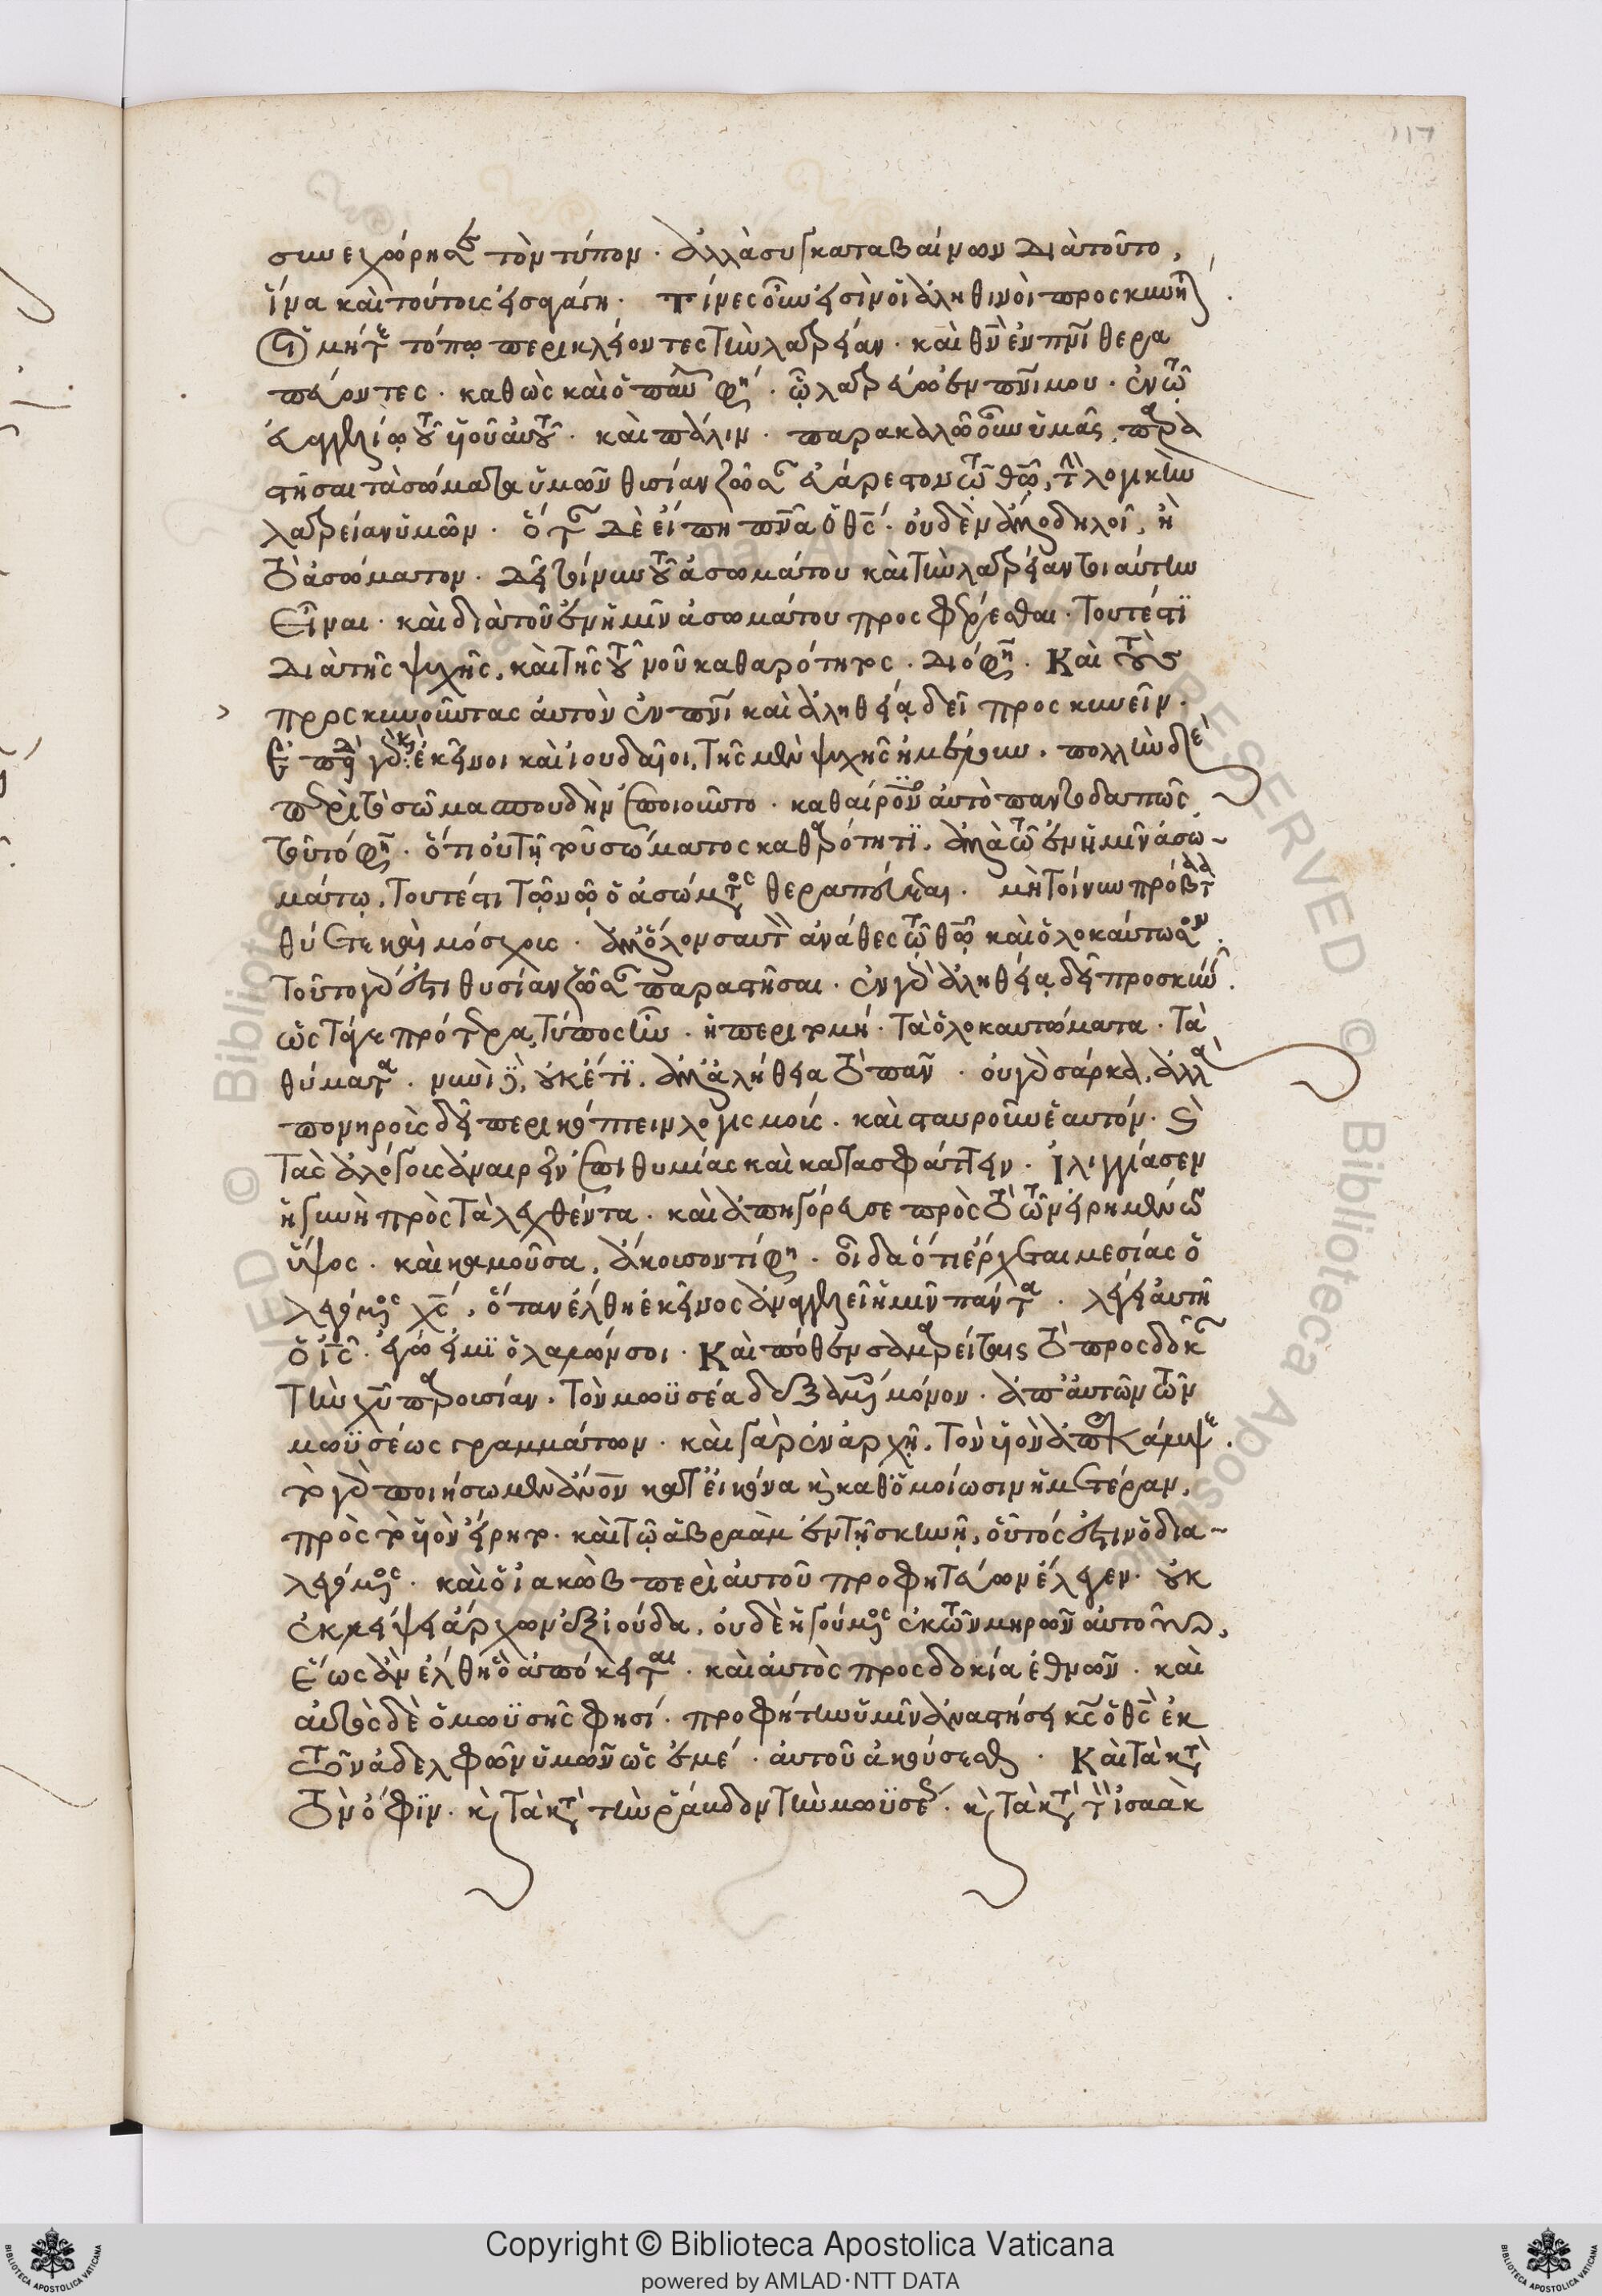 117
συνεχώρησε τὸν τύπον· ἀλλὰ συγκαταβαίνων διὰ τοῦτο,
ἵνα καὶ τούτοις εἰσαγάγη· τίνες οὖν εἰσὶν οἱ ἀληθινοὶ προσκυνηταί·
οἱ μήτε τόπω περικλείοντες τὴν λατρείαν· καὶ θν ἐν πνι θερα
πεύοντες· καθὼς καὶ ὁ παῦλος φη· ὧ λατρεύω ἐν πνι μου· ἐν τῶ
εὐαγγελίω τοῦ υἱοῦ αὐτοῦ· καὶ πάλιν· παρακαλῶ οὖν ὑμᾶς, παρα
στῆσαι τὰ σώματα ὑμῶν θυσίαν ζῶσαν εὐάρεστον τῶ θῶ, τὴν λογικὴν
λατρείαν ὑμῶν· ὅταν δὲ εἴπη πνα ὁ θς· οὐδὲν ἄλλο δηλοῖ, ἢ
τὸ ἀσώματον· δεῖ τοίνυν τοῦ ἀσωμάτου καὶ τὴν λατρείαν τοιαύτην
εἶναι· καὶ διὰ τοῦ ἐν ἡμῖν ἀσωμάτου προσφέρεσθαι· τουτέστι
διὰ τῆς ψυχῆς, καὶ τῆς τοῦ νοῦ καθαρότητος· διό φησι· Καὶ τοὺς
προσκυνοῦντας αὐτὸν ἐν πνι καὶ ἀληθεία δεῖ προσκυνεῖν·
ἐπειδὴ γὰρ κἀκεῖνοι καὶ ἰουδαῖοι, τῆς μὲν ψυχῆς ἠμέλουν· πολλὴν δὲ
περὶ τὸ σῶμα σπουδὴν ἐποιοῦντο· καθαίροντες αὐτὸ παντοδαπῶς
τοῦτό φησι· ὅτι οὐ τῆ τοῦ σώματος καθαρότητι, ἀλλὰ τῶ ἐν ἡμῖν ἀσω
μάτω, τουτέστι τῶ νῶ ὁ ἀσώματος θεραπεύεται· μὴ τοίνυν πρόβατα
θύετε καὶ μόσχους· ἀλλ' ὅλον σαυτὸν ἀνάθες τῶ θῶ καὶ ὁλοκαύτωσον·
τοῦτο γάρ ἐστι θυσίαν ζῶσαν παραστῆσαι· ἐν γὰρ ἀληθεία δεῖ προσκυνεῖν·
ὡς τάγε πρότερα, τύπος ἦν· ἡ περιτομή· τὰ ὁλοκαυτώματα· τὰ
θύματα· νυνὶ δὲ, οὐκέτι, ἀλλ' ἀλήθεια τὸ πᾶν· οὐ γὰρ σάρκα, ἀλλὰ
πονηροὺς δεῖ περικόπτειν λογισμούς· καὶ σταυροῦν ἑαυτόν· καὶ
τὰς ἀλόγους ἀναιρεῖν ἐπιθυμίας καὶ κατασφάττειν· Ἰλιγγίασεν
ἡ γυνὴ πρὸς τὰ λεχθέντα· καὶ ἀπηγόρευσε πρὸς τὸ τῶν εἰρημένων
ὕψος· καὶ καμοῦσα, ἄκουσον τί φη· οἶδα ὅτι ἔρχεται μεσίας ὁ
λεγόμενος χς, ὅταν ἔλθη ἐκεῖνος ἀναγγελεῖ ἡμῖν πάντα· λέγει αὐτῆ
ὁ ις· ἐγώ εἰμι ὁ λαλῶν σοι· Καὶ πόθεν σαμαρείταις τὸ προσδοκᾶν
τὴν χυ παρουσίαν· τὸν μωϋσέα δεξαμένοις μόνον· ἀπ' αὐτῶν τῶν
μωϋσέως γραμμάτων· καὶ γὰρ ἐν ἀρχῆ, τὸν υἱὸν ἀπεκάλυψε·
τὸ γὰρ ποιήσωμεν ἄνον κατ' εἰκόνα κ καθ' ὁμοίωσιν ἡμετέραν,
πρὸς τὸν υἱὸν εἴρητο· καὶ τῶ ἀβραὰμ ἐν τῆ σκηνῆ, οὗτός ἐστιν ὁ δια
λεγόμενος· καὶ ὁ ἰακὼβ περὶ αὐτοῦ προφητεύων ἔλεγεν· οὐκ
ἐκλείψει ἄρχων ἐξ ἰούδα, οὐδὲ ἡγούμενος ἐκ τῶν μηρῶν αὐτοῦ,
ἕως ἂν ἔλθη ὃ ἀπόκειται· καὶ αὐτὸς προσδοκία ἐθνῶν· καὶ
αὐτὸς δὲ ὁ μωϋσῆς φησί· προφήτην ὑμῖν ἀναστήσει κς ὁ θς ἐκ
τῶν ἀδελφῶν ὑμῶν ὡς ἐμέ· αὐτοῦ ἀκούσεσθε· Καὶ τὰ κατὰ
τὸν ὄφιν· κ τὰ κατὰ τὴν ῥάβδον τὴν μωϋσέως· κ τὰ κατὰ τὸν ἰσαὰκ
Copyright © Biblioteca Apostolica Vaticana
powered by AMLAD·NTT DATA